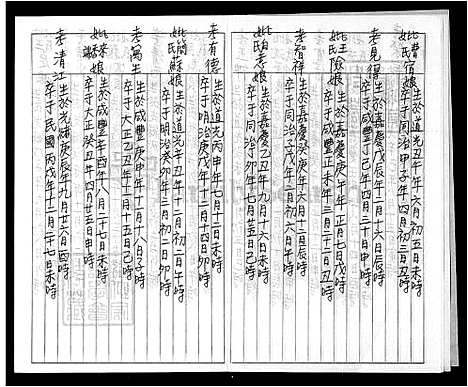 妣曹氏宿娘 生於道光丑午年六月初五日未時
卒于同治甲子年四月初三日丑時
考見得 生於嘉慶戊辰年二月十六日辰時
卒于咸豐丁己年四月三十日申時
妣王氏險娘 生於嘉慶庚午年正月七日戊時
卒于咸豐 未年三月二十三日丑時
考智祥 生於嘉慶癸庚年六月十三日辰時
卒于同治子戊年二月初六日午時
妣 氏 娘 生於嘉慶乙丑年九月十六日未時
卒于同治丁卯年七月廿五日己時
考有德 生於道光丙申年七月十二日未時
卒于明治庚戊年十二月十四日卯時
妣簡氏蘇娘 生於道光辛丑年十二月初二日午時
卒于明治 卯年十一月初二日卯時
考萬生 生於咸豐庚申年十一月十八日子時
卒于大正乙丑年三月十五日己時
妣 氏 娘 生於咸豐辛酉年八月二十七日未時
卒于大正癸丑年四月廿五日申時
考清江 生於光緒庚辰年九月廿六日酉時
卒于民國丙戊年十二月二十七日未時